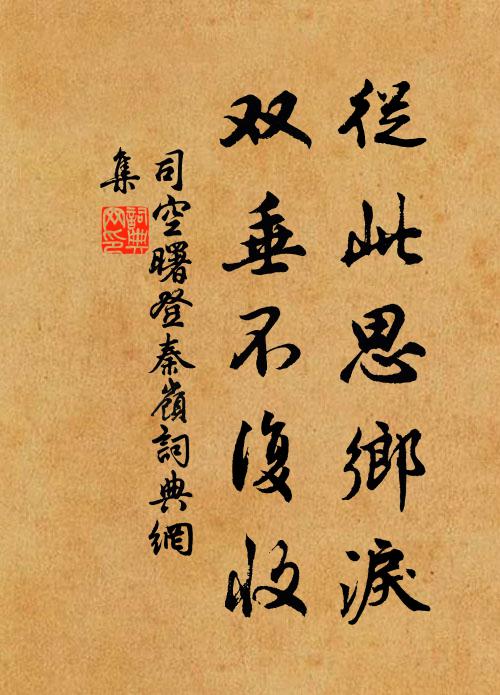 從此思鄉淚
双垂不復收
司空曙登秦嶺詞典網
集
詞典
网印